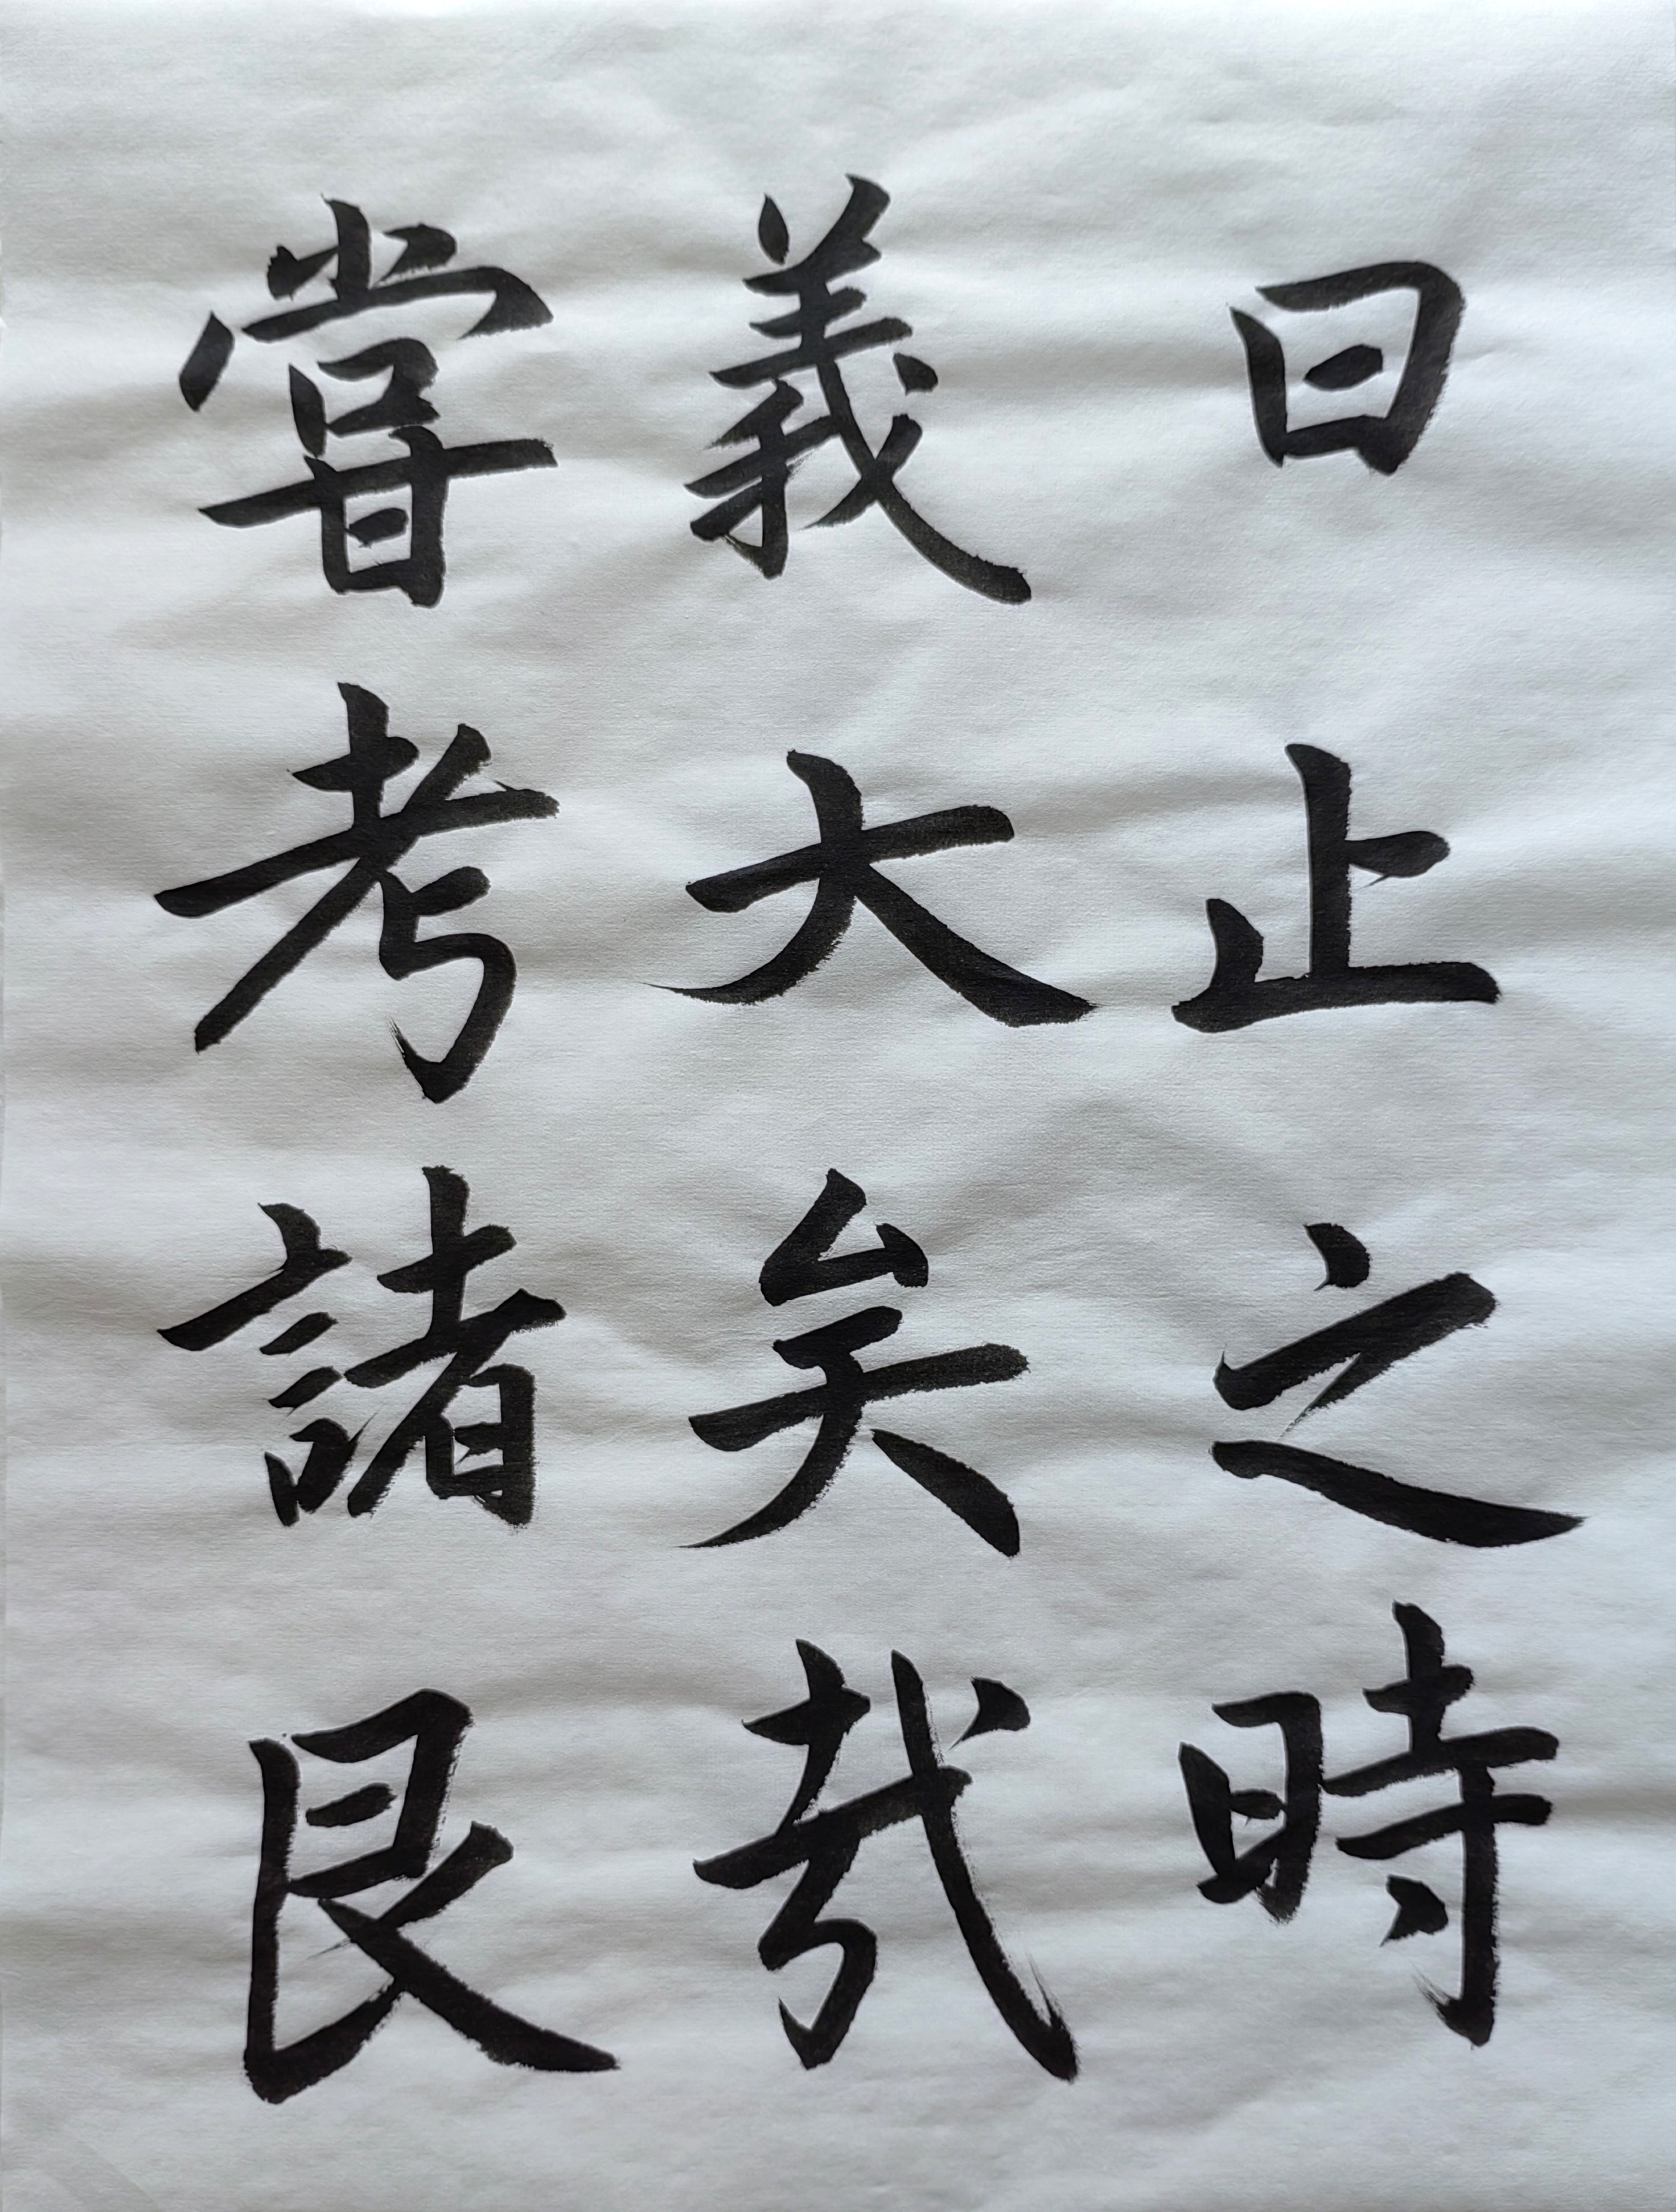 曰止之時
義大矣哉
嘗考諸艮